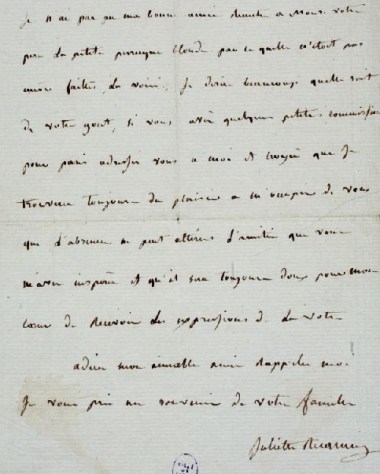 Je n'ai pas pu ma bonne amie remettre a Mons votre
pere la petite perruque blonde par ce quelle n'etoit pas
encore faites. La voici; Je desire beaucoup quelle soit
de votre gout, si vous avez quelques petites commissions
pour paris adressez vous a moi et croyez que Je
trouverai toujours du plaisir a m'occuper de vous
que l'absence ne peut alterer l'amitié que vous
m'avez inspirée et qu'il sera toujours doux pour mon
cœur de recevoir des expressions de la votre
adieu mon aimable amie Rappelez moi
Je vous prie au souvenir de votre famille
Juliette Recamier